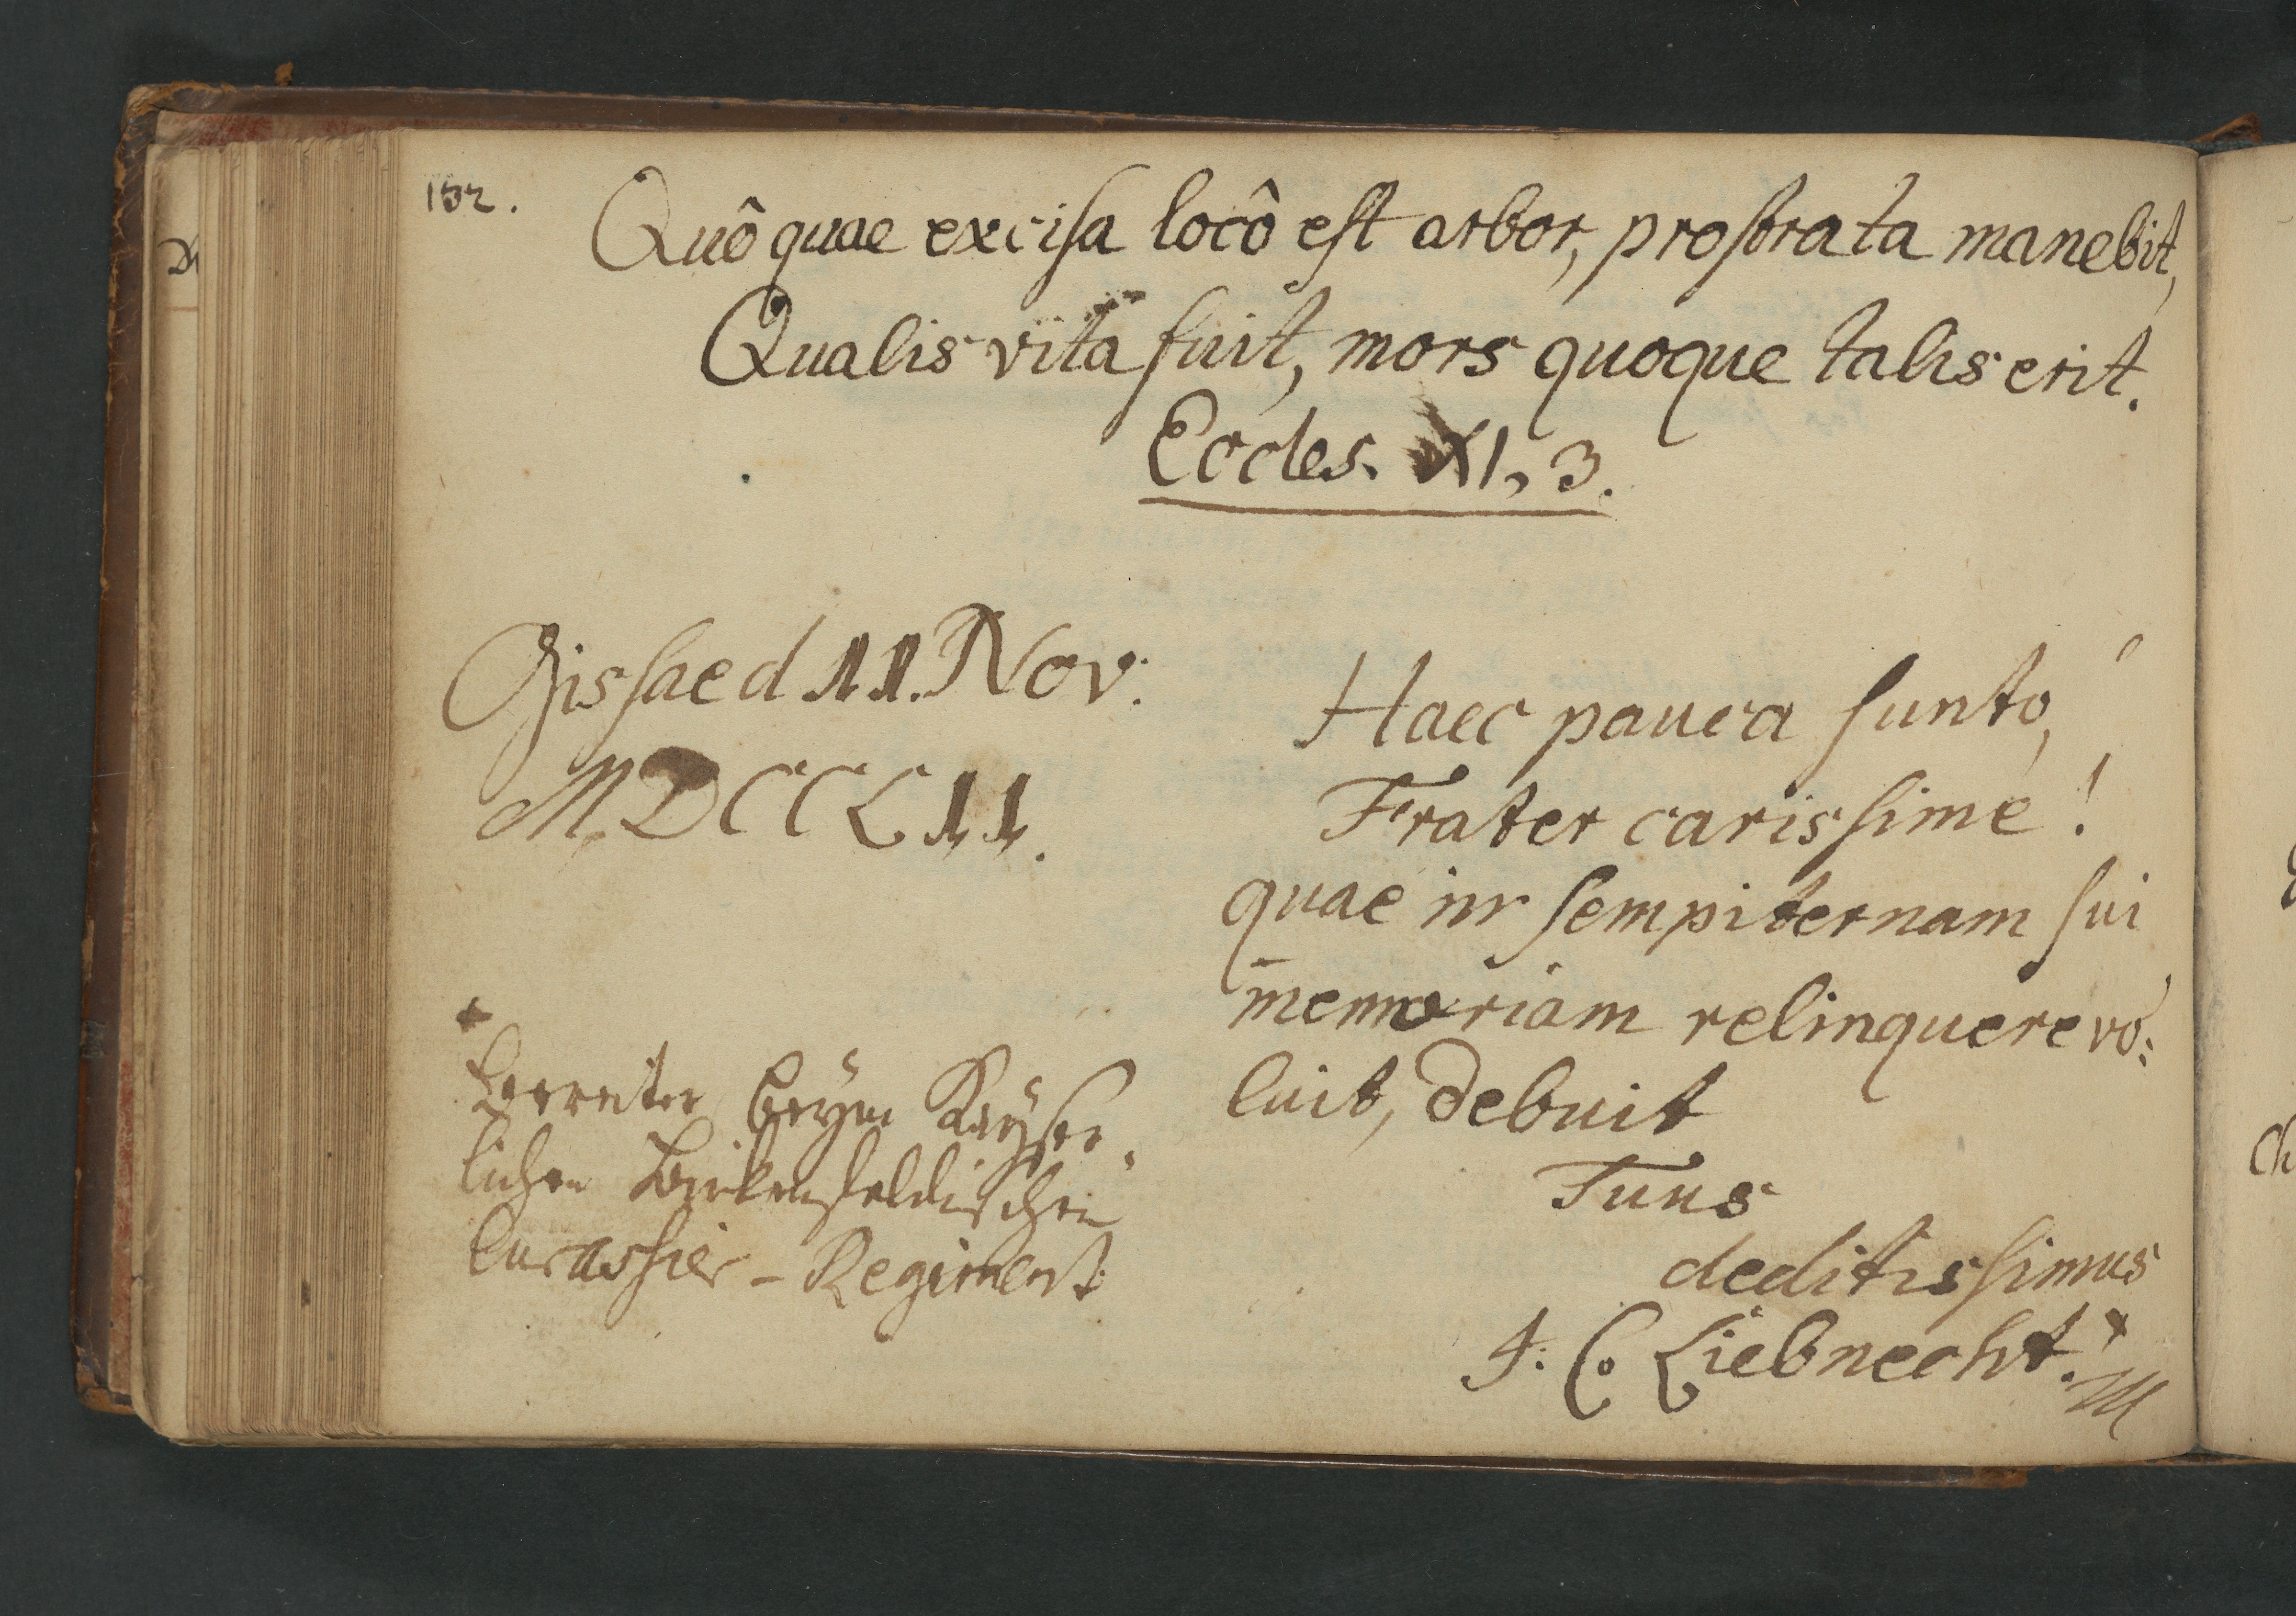 152.
Quô quae excisa locô est arbor, prostrata manebit,
Qualis vita fuit, mors quoque talis erit.
Eccles. XI, 3.
Gissae d 11. Nov.
MDCCLII.
Haec pauca sunto,
Frater carissime!
quae in sempiternam sui
memoriam relinquere vo:
luit, debuit
Tuus
deditissimus
J. C. Liebnecht.*
*
Bereiter beym Kayser-
lichen Birkenfeldischen
Curassier-Regiment